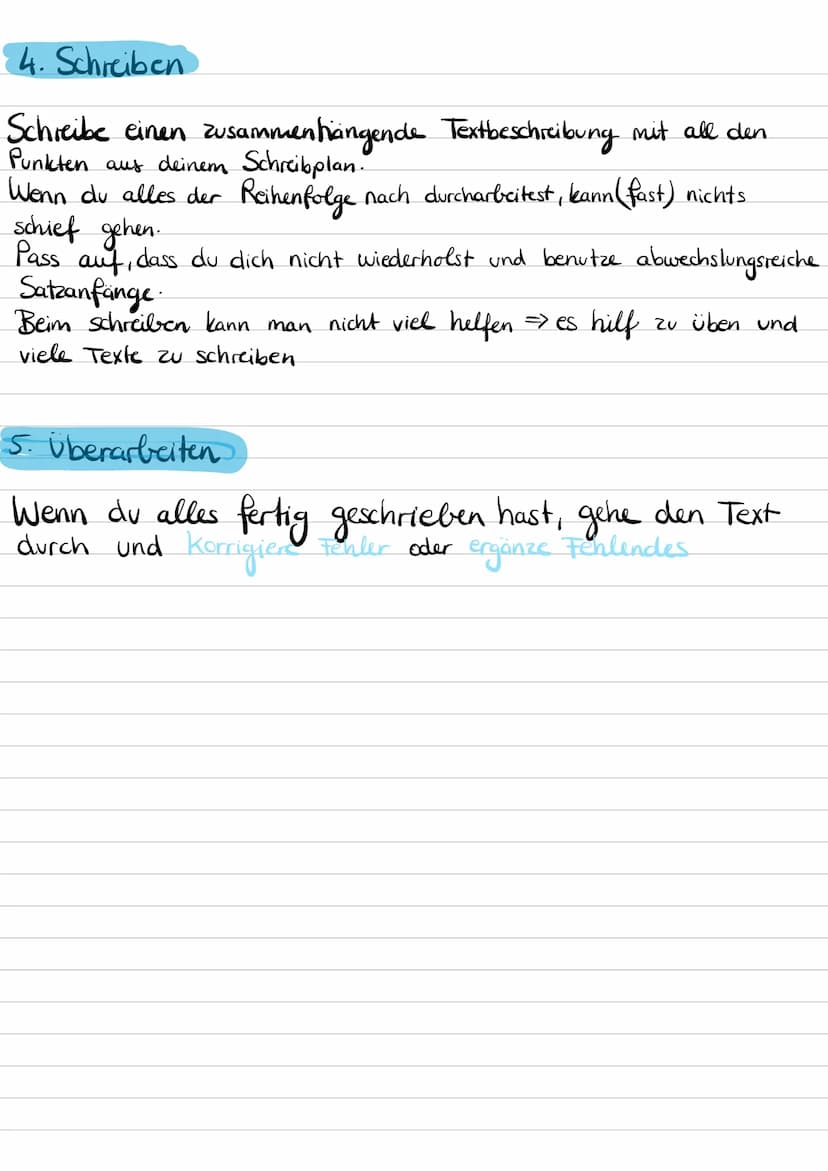 4. Schreiben
Schreibe einen zusammenhängende Textbeschreibung mit all den
Punkten aus deinem Schreibplan.
Wenn du alles der Reihenfolge nach durcharbeitest, kann (fast) nichts
schief gehen.
Pass auf, dass du dich nicht wiederholst und benutze abwechslungsreiche
Satzanfänge.
Beim schreiben kann man nicht viel helfen => es hilf zu üben und
viele Texte zu schreiben
5. Überarbeiten
Wenn du alles fertig geschrieben hast, gehe den Text
durch und korrigiere Fehler oder ergänze Fehlendes